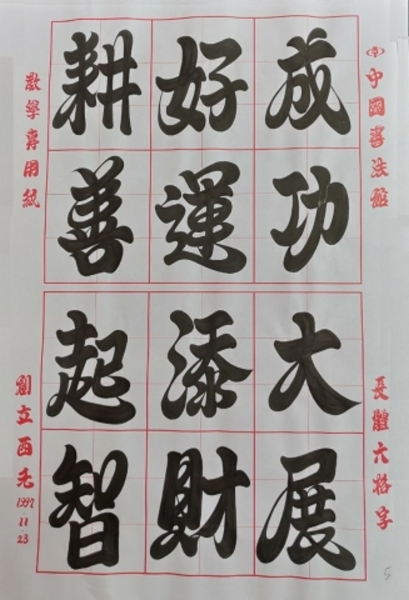 中國書法館
長體六格字
成功大展
好運添財
耕善起智
教學專用紙
創立西元1997.11.23
5